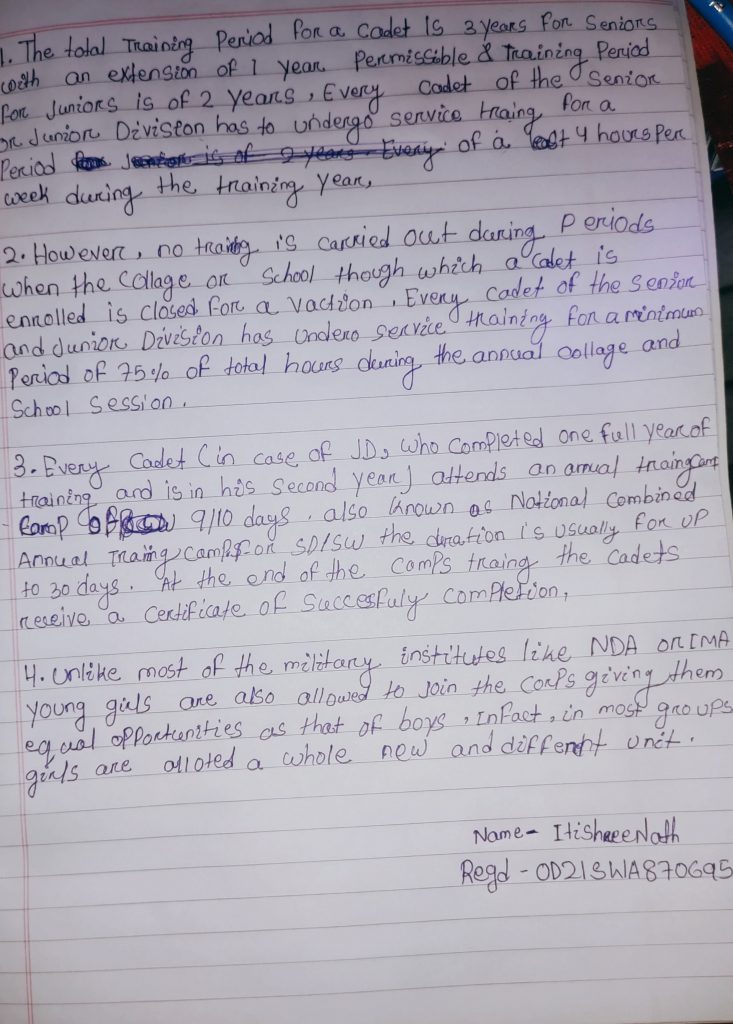 1. The total Training Period for a cadet is 3 years for Seniors
with an extension of 1 year Permissible & Training Period
for Juniors is of 2 years, Every Cadet of the Senior
or Junior Division has to undergo service traing for a
Period of a least 4 hours per
week during the training year,
2. However, no traing is carried out during Periods
when the Collage or School though which a Cadet is
enrolled is closed for a vaction. Every Cadet of the Senior
and Junior Division has undero service training for a minimum
Period of 75% of total hours during the annual collage and
School Session.
3. Every Cadet (in case of JD, who Completed one full year of
training and is in his Second year) attends an annual
Camp 9/10 days. also known as National Combined
Annual Traing Camps for SD/SW the duration is usually for up
to 30 days. At the end of the camps traing the cadets
receive a certificate of Succesfuly completion,
4. unlike most of the military institutes like NDA or IMA
young girls are also allowed to join the corps giving them
equal opportunities as that of boys, Infact, in most groups
girls are alloted a whole new and different unit.
Name- Itishree Nath
Regd - OD21SWA870695